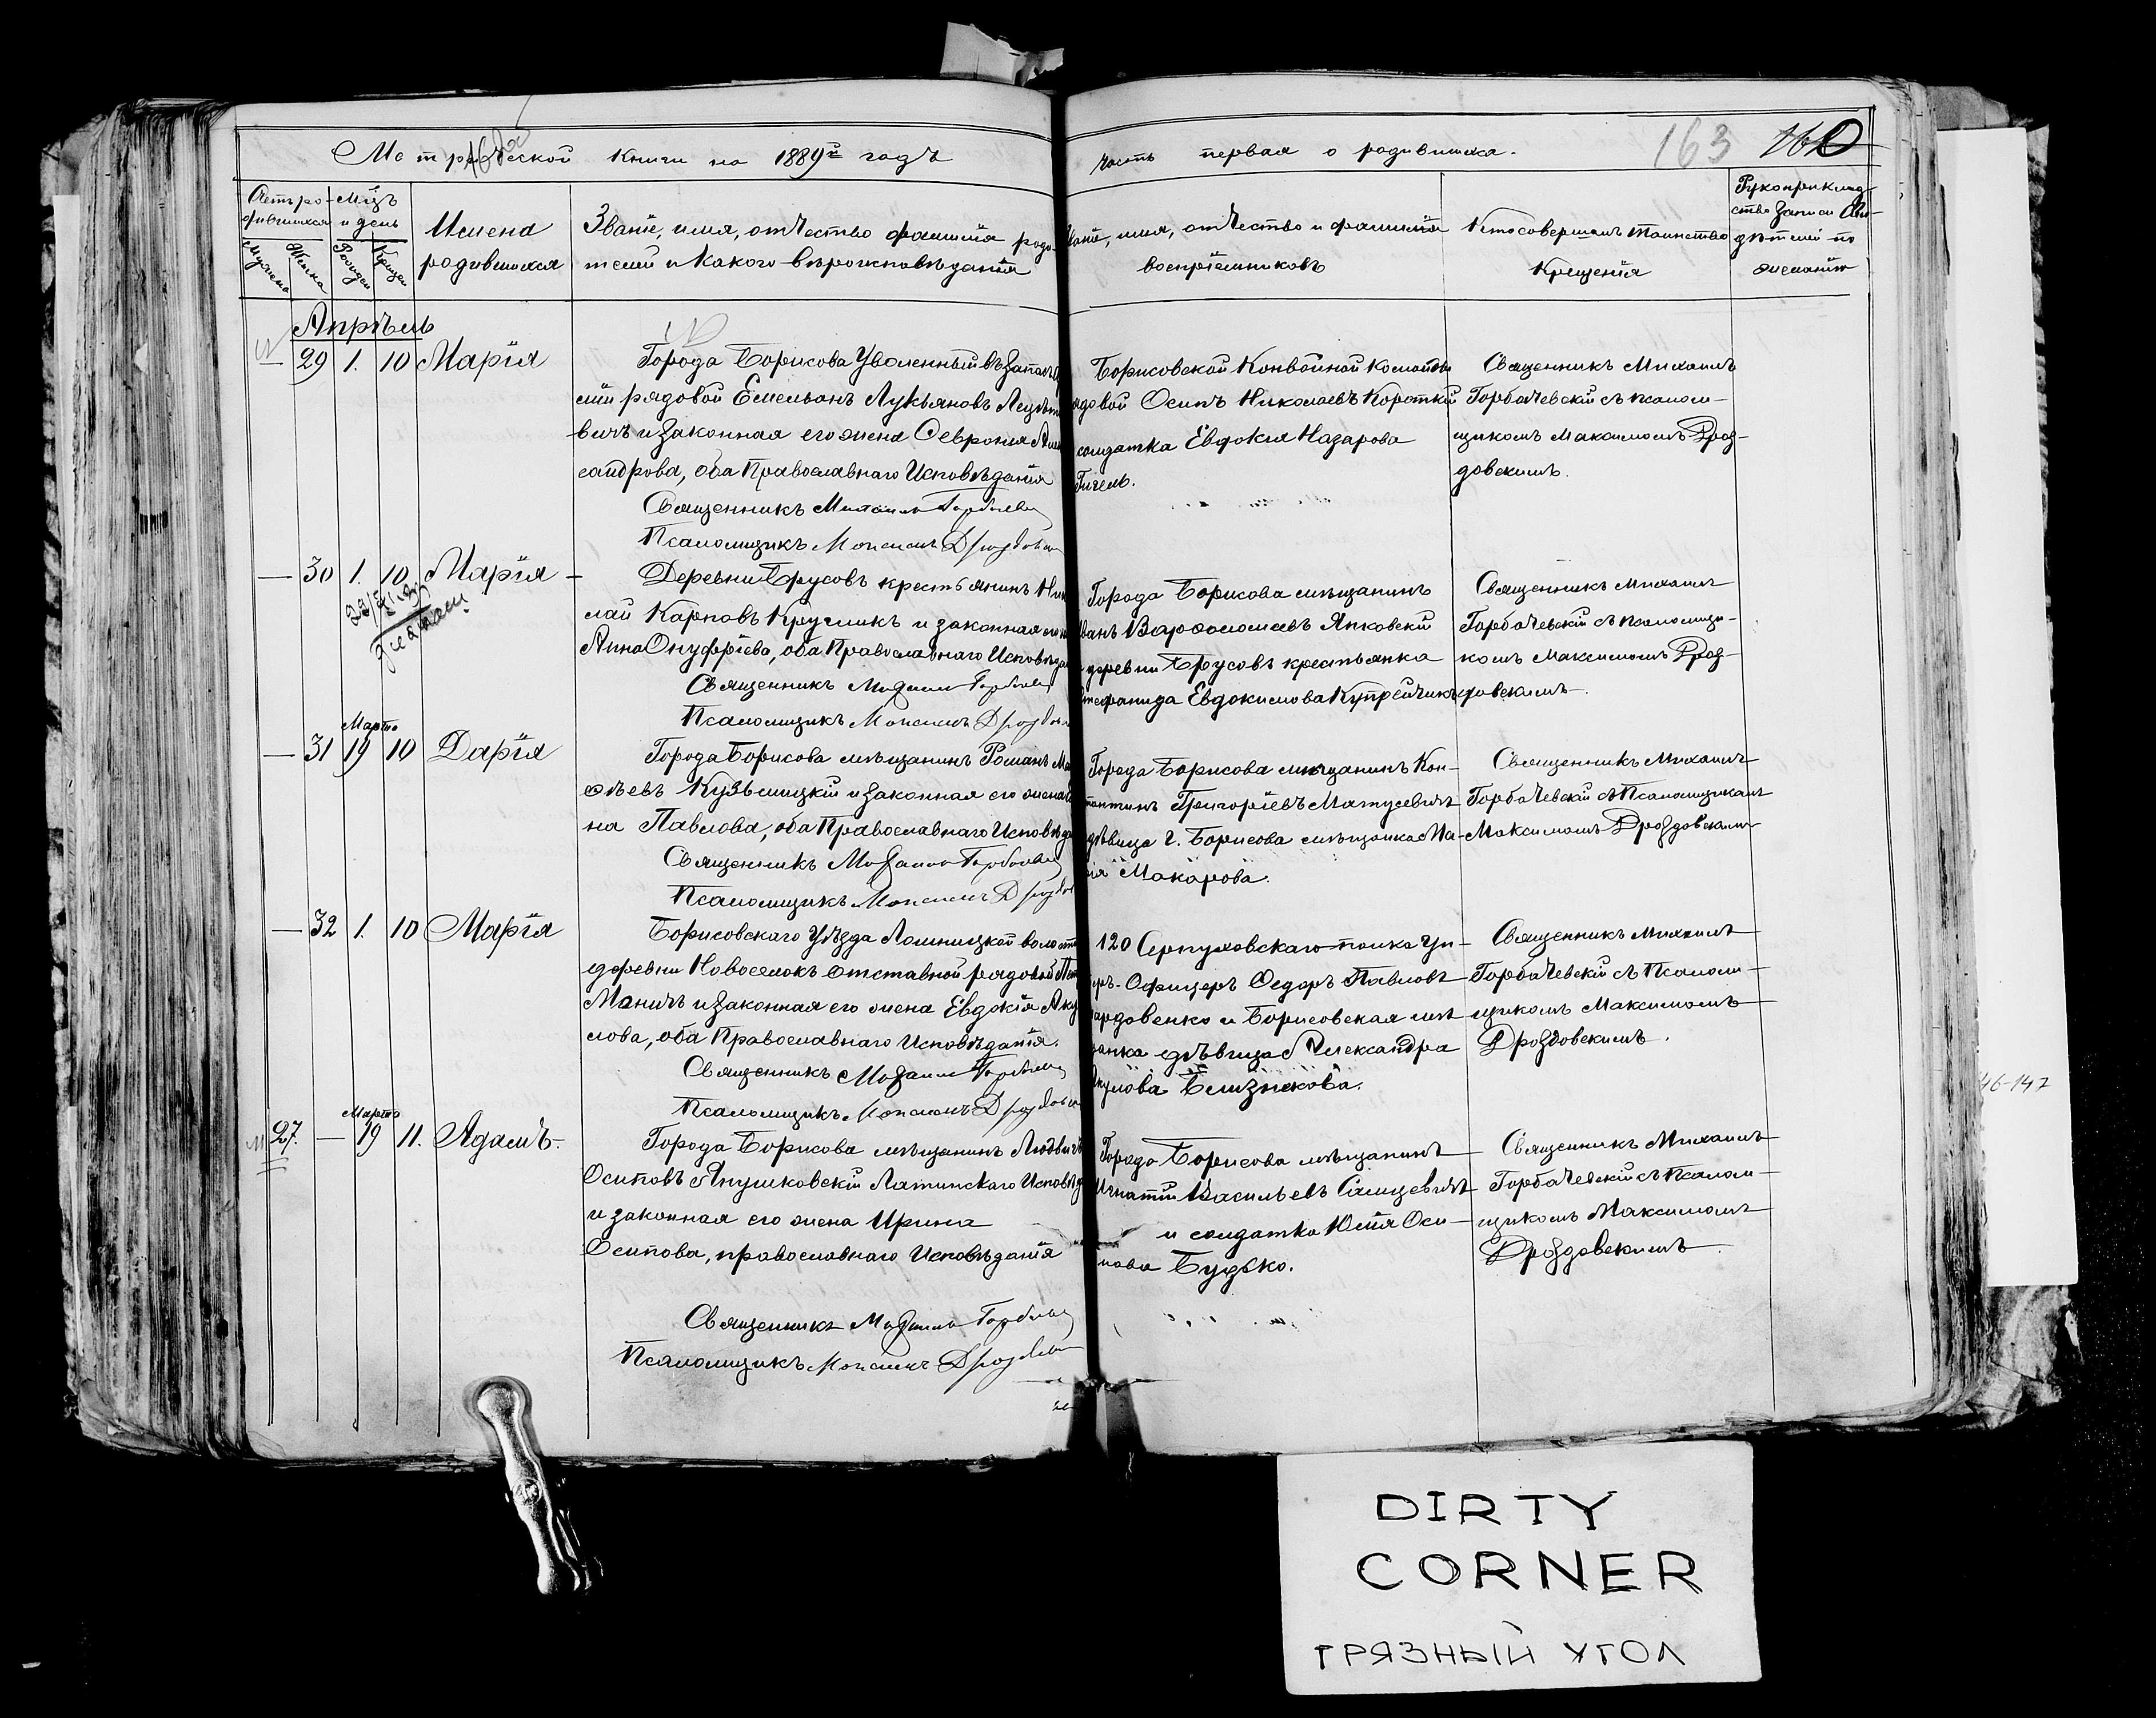 Метрической книги на 1889й годъ
часть первая о родившихся.
163 160
Счетъ ро-
дившихся
Мѣцъ
и день
Мужеска
Женска
Рожден
Крещен
Имена
родившихся
Званіе, имя, отчество фамилія роди-
телей и какого вѣроисповѣданія
Званіе, имя, отчество и фамилія
воспріемниковъ
Кто совершалъ таинство
крещенія
Рукоприклад-
ство записи сви-
дѣтелей по
желанію
Апрѣль
— 29 1. 10 Марія
Города Борисова уволенный въ запасъ
рядовой Емельянъ Лукьяновъ
вичъ и законная его жена Феврония
сандрова, оба Православнаго Исповѣданія
Священникъ Михаилъ
Псаломщикъ Максимъ
Борисовской Конвойной Команды
рядовой Осипъ Николаевъ Короткій
солдатка Евдокія Назарова
Гигель.
Священникъ Михаилъ
Горбачевскій съ псалом-
щикомъ Максимомъ Дроз-
довскимъ.
— 30 1. 10 Марія —
Деревни Брусовъ крестьянинъ
лай Карповъ Кругликъ и законная его
Анна Онуфріева, оба Православнаго
Священникъ
Псаломщикъ Максимъ
Города Борисова мѣщанинъ
Варфоломеевъ Янковскій
деревни Брусовъ крестьянка
Стефанида Евдокимова Купрейчикъ
Священникъ Михаилъ
Горбачевскій съ псаломщи-
комъ Максимомъ Дроз-
довскимъ.
Марта
— 31 19 10 Дарія
Города Борисова мѣщанинъ Романъ
ѳѣевъ Кузьмицкій и законная его жена
на Павлова, оба Православнаго
Священникъ
Псаломщикъ Максимъ
Города Борисова мѣщанинъ Кон-
стантинъ Григоріевъ Матусевичъ
дѣвица г. Борисова мѣщанка Ма-
рія Макарова.
Священникъ Михаилъ
Горбачевскій съ Псаломщикомъ
Максимомъ Дроздовскимъ
— 32 1. 10 Марія
Борисовскаго Уѣзда Лошницкой волости
деревни Новоселокъ отставной рядовой
Маничъ и законная его жена Евдокія
лова, оба Православнаго Исповѣданія.
Священникъ
Псаломщикъ Максимъ
120 Серпуховскаго полка Ун-
теръ-Офицеръ Федоръ Павловъ
и Борисовская мѣ
щанка дѣвица Александра
Близнюкова.
Священникъ Михаилъ
Горбачевскій съ Псалом-
щикомъ Максимомъ
Дроздовскимъ.
Марта
27. — 19 11. Адамъ.
Города Борисова мѣщанинъ Людвигъ
Осиповъ Янушковскій Латинскаго
и законная его жена Ирина
Осипова, православнаго Исповѣданія
Священникъ
Псаломщикъ Максимъ
Города Борисова мѣщанинъ
Игнатій Васильевъ
и солдатка Юлія Оси-
пова Будько.
Священникъ Михаилъ
Горбачевскій съ псалом-
щикомъ Максимомъ
Дроздовскимъ.
46-147
DIRTY
CORNER
ГРЯЗНЫЙ УГОЛ